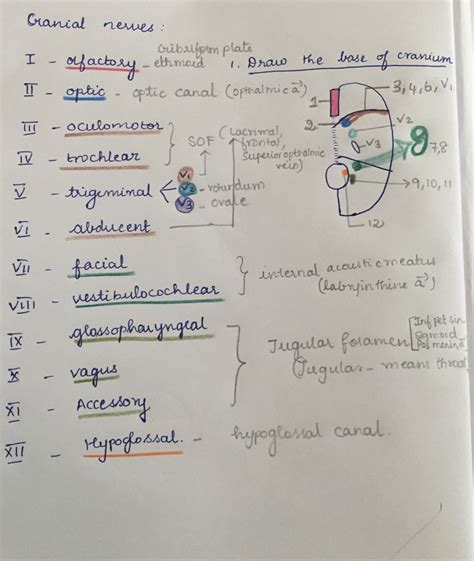 Cranial nerves :
Cribriform plate
I - olfactory - ethmoid 1. Draw the base of cranium
II - optic - optic canal (opthalmic a⃗)
1
3, 4, 6, V₁
2
V₂
V₃
7,8
9, 10, 11
12
III - oculomotor
SOF (Lacrimal,
frontal,
Superior opthalmic
vein)
IV - trochlear
V - trigeminal
V₁
V₂ - rotundum
V₃ - ovale
VI - abducent
VII - facial
internal acoustic meatus
(labyrinthine a⃗)
VIII - vestibulocochlear
IX - glossopharyngeal
Jugular foramen
Inf pet sin
sigmoid
Pos mening
(Jugular - means throat
X - vagus
XI - Accessory
XII - Hypoglossal. - hypoglossal canal.